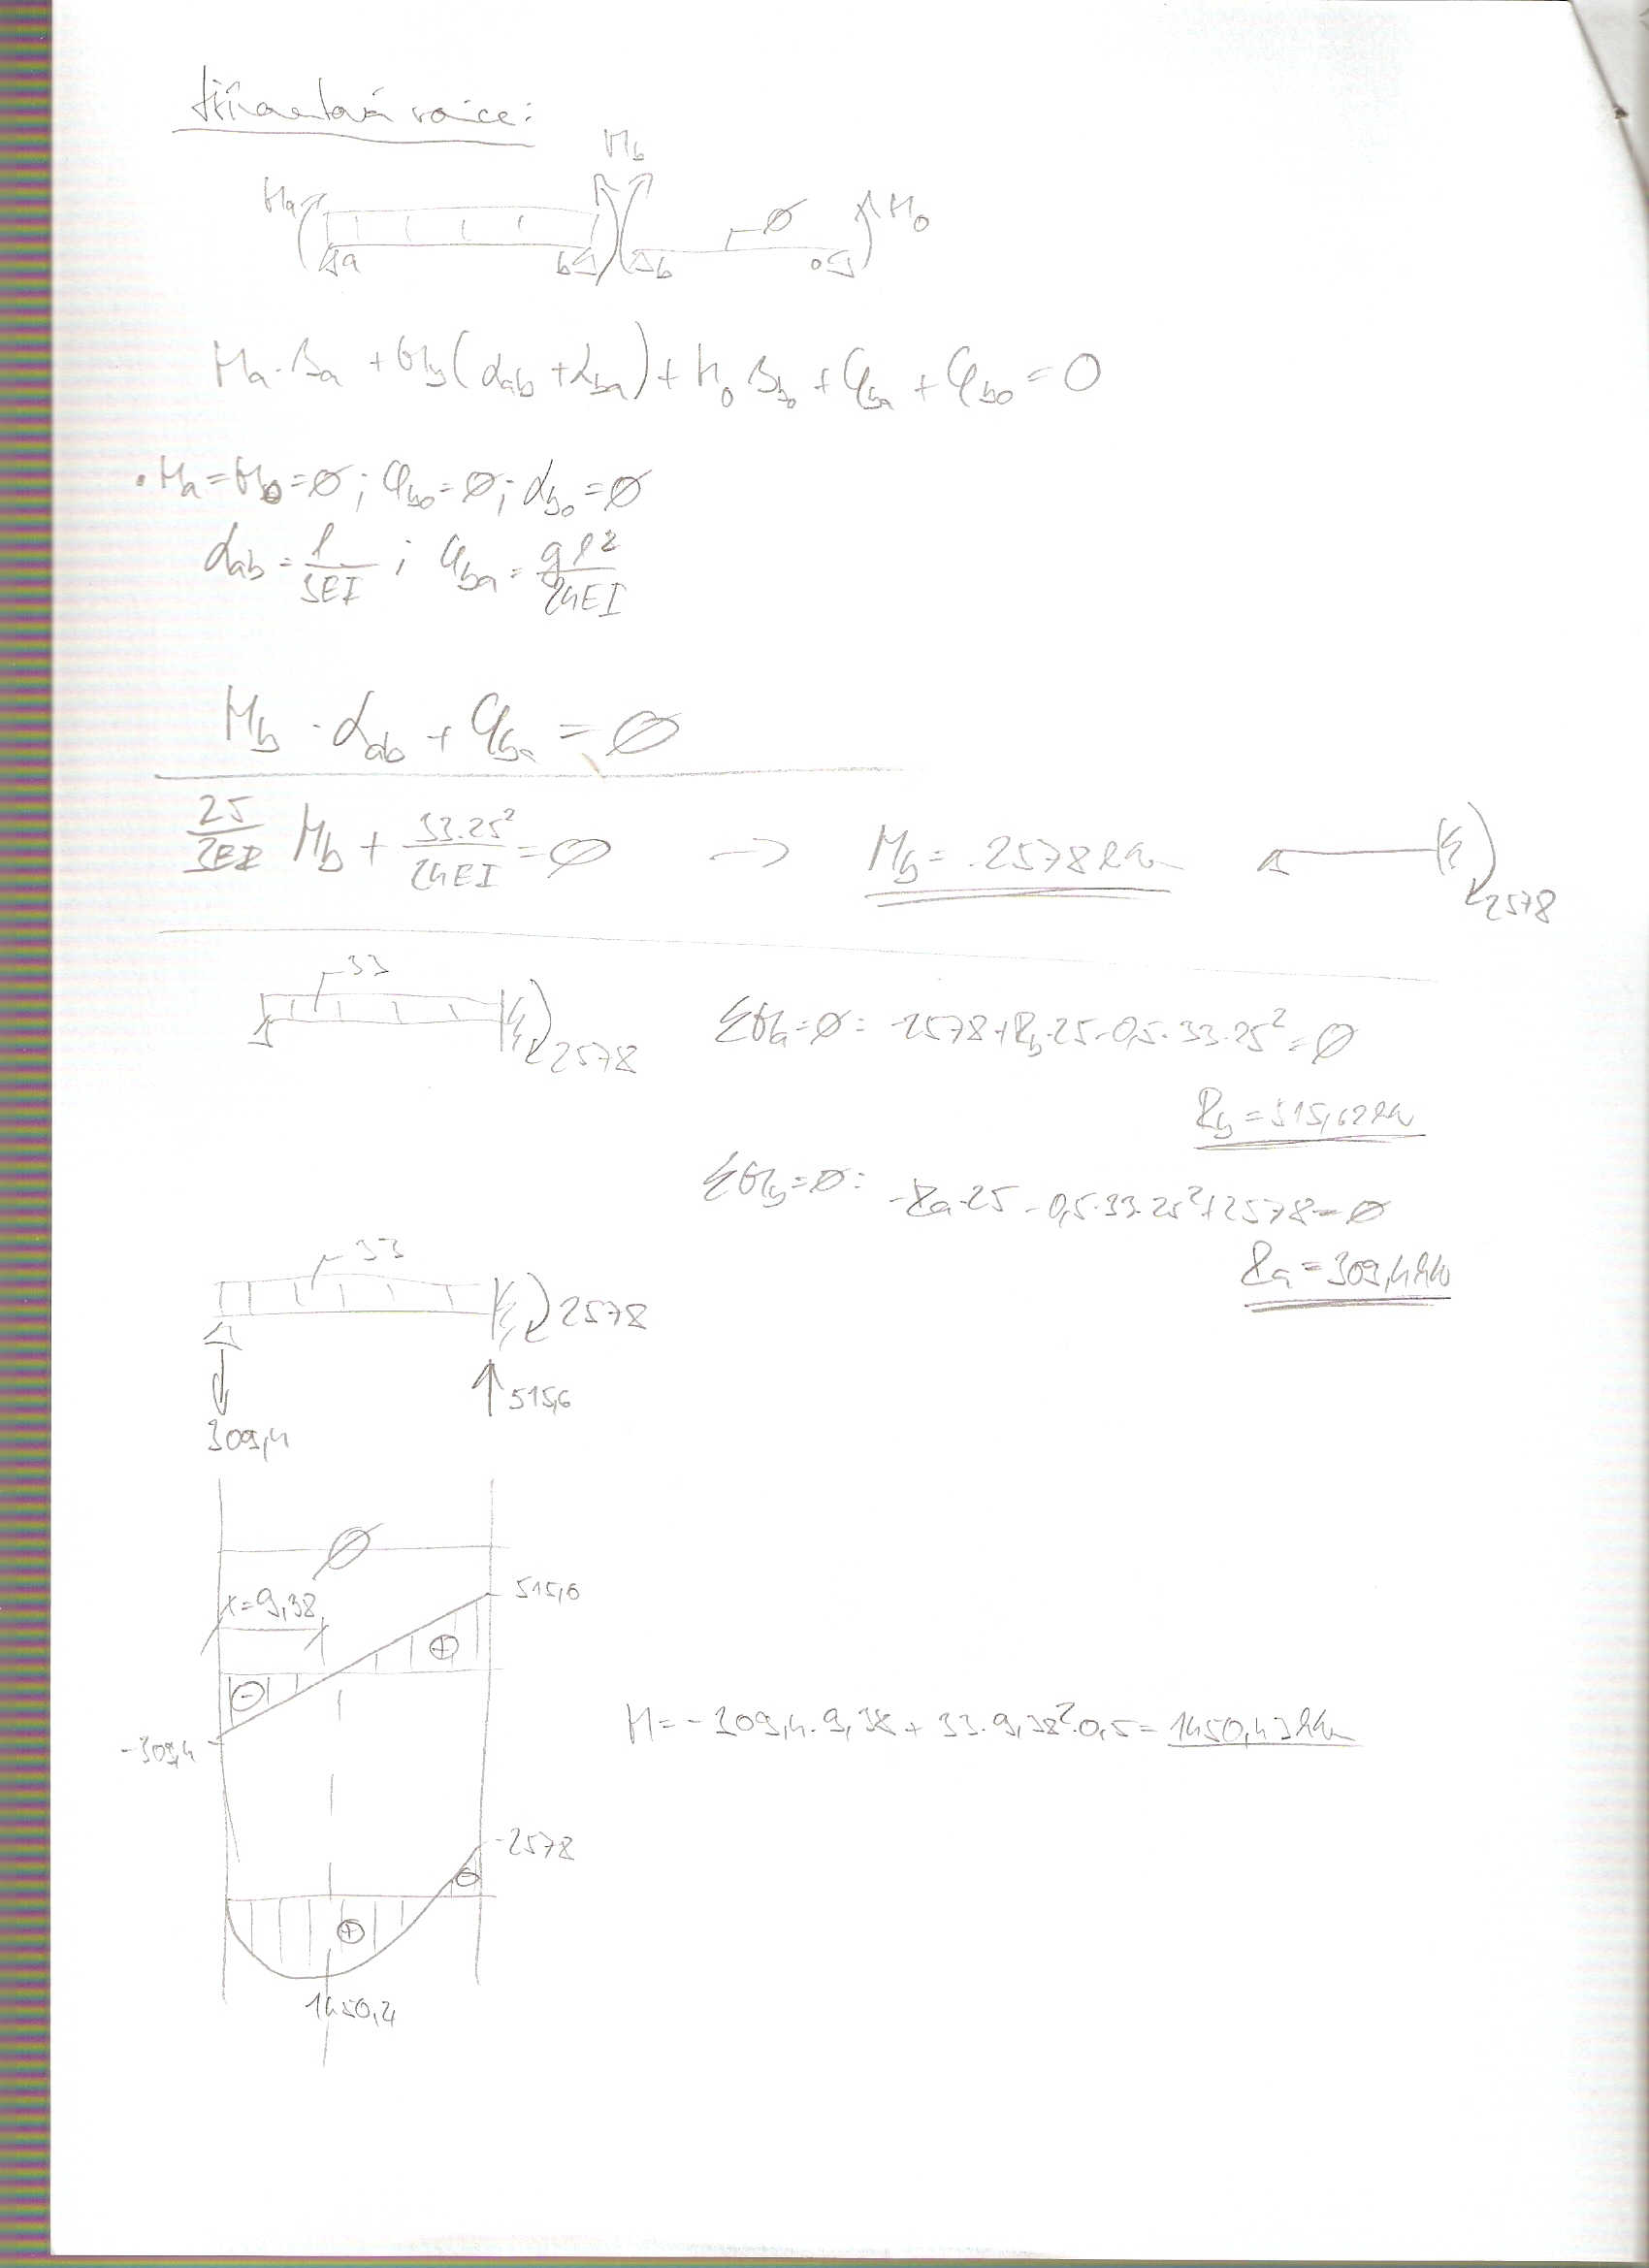 Třímomentová rovnice:
Mb
Ma
∅
M0
a
b
b
0
Ma·βa + Mb(αab+αba) + M0 βb0 + φba + φb0 = 0
·Ma=Mb0=∅; φb0=∅; αb0=∅
αab = l/3EI ; φba = gl²/24EI
Mb · αab + φba = ∅
25/3EI Mb + 33·25²/24EI = ∅ → Mb = -2578kNm
2578
33
2578
ΣMa=∅: -2578+Rb·25-0,5·33·25²=∅
Rb=515,62kN
ΣMb=∅: -Ra·25-0,5·33·25²+2578=∅
Ra=309,4kN
33
2578
515,6
309,4
∅
x=9,38
515,6
⊕
⊖
-309,4
M=-309,4·9,38+33·9,38²·0,5=1450,43kNm
-2578
⊖
⊕
1450,4